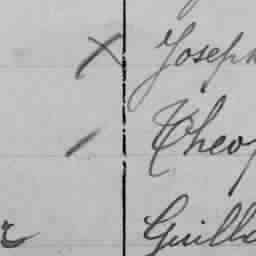 X Joseph
/ Theop
Guilla